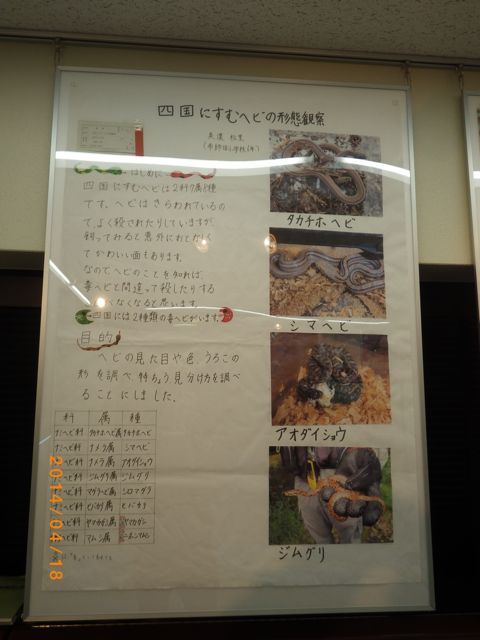 四国にすむヘビの形態観察
はじめに
四国にすむヘビは2科7属8種
です。ヘビはきらわれているの
で、よく殺されたりしていますが、
飼ってみると意外におとなしく
てかわいい面もあります。
なのでヘビのことを知れば、
毒ヘビと間違って殺したりする
なくなると思います。
四国には2種類の毒ヘビがいます。
目的
ヘビの見た目や色、うろこの
形を調べ、特ちょう、見分け方を調べ
ることにしました。
科 属 種
タカチホヘビ属 タカチホヘビ
ナメラ属 シマヘビ
ナメラ属 アオダイショウ
ジムグリ属 ジムグリ
マダラヘビ属 シロマダラ
ヒバカリ属 ヒバカリ
ヤマカガシ属 ヤマカガシ
マムシ属 ニホンマムシ
タカチホヘビ
シマヘビ
アオダイショウ
ジムグリ
2014/04/18